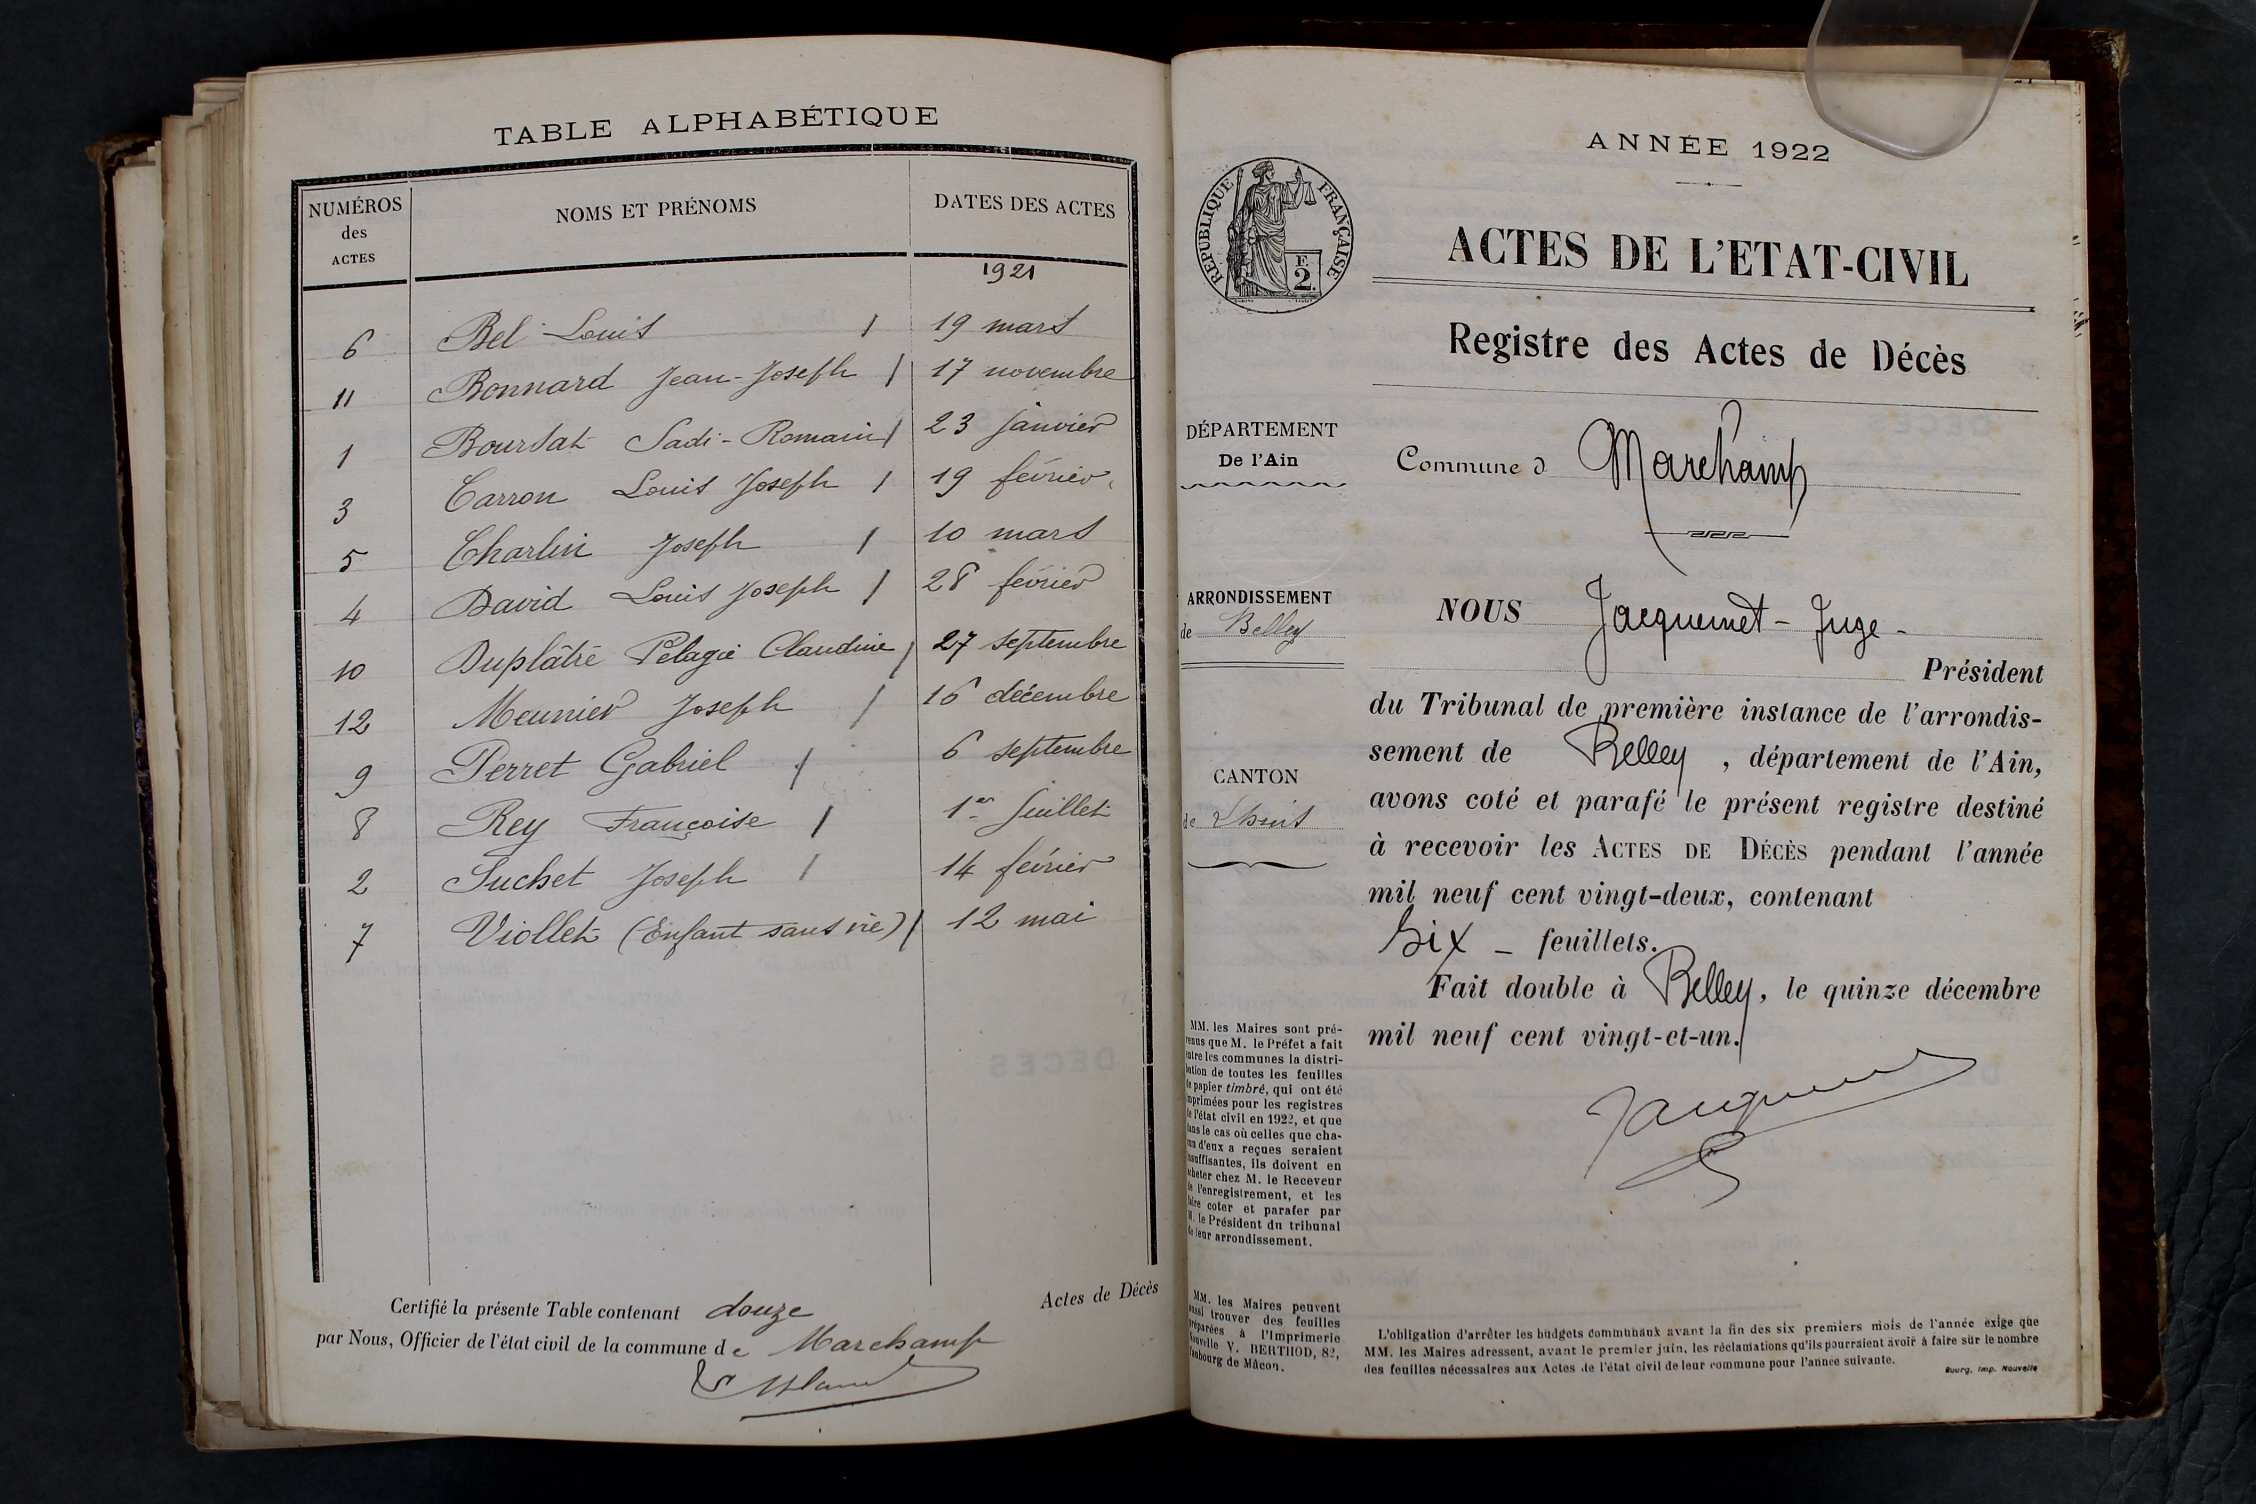 TABLE ALPHABÉTIQUE
NUMÉROS des ACTES
NOMS ET PRÉNOMS
DATES DES ACTES
1921
6 Bel Louis 19 mars
11 Bonnard Jean-Joseph 17 novembre
1 Boursat Sadi-Romain 23 janvier
3 Carron Louis Joseph 19 février
5 Charlin Joseph 10 mars
4 David Louis Joseph 28 février
10 Duplâtre Pélagie Claudine 27 septembre
12 Meunier Joseph 16 décembre
9 Perret Gabriel 6 septembre
8 Rey Françoise 1er Juillet
2 Suchet Joseph 14 février
7 Viollet (Enfant sans vie) 12 mai
Certifié la présente Table contenant douze Actes de Décès
par Nous, Officier de l'état civil de la commune de Marchamp
ANNÉE 1922
RÉPUBLIQUE FRANÇAISE
F.
2.
ACTES DE L'ETAT-CIVIL
Registre des Actes de Décès
DÉPARTEMENT
De l'Ain
Commune d Marchamp
ARRONDISSEMENT
de Belley
CANTON
de Lhuis
NOUS Jacquemet - Juge -
Président
du Tribunal de première instance de l'arrondis-
sement de Belley, département de l'Ain,
avons coté et parafé le présent registre destiné
à recevoir les ACTES DE DÉCÈS pendant l'année
mil neuf cent vingt-deux, contenant
Six - feuillets.
Fait double à Belley, le quinze décembre
mil neuf cent vingt-et-un.
Jacquemet
MM. les Maires sont pré-
venus que M. le Préfet a fait
entre les communes la distri-
bution de toutes les feuilles
de papier timbré, qui ont été
imprimées pour les registres
de l'état civil en 1922, et que
dans le cas où celles que cha-
cun d'eux a reçues seraient
insuffisantes, ils doivent en
acheter chez M. le Receveur
de l'enregistrement, et les
faire coter et parafer par
M. le Président du tribunal
de leur arrondissement.
MM. les Maires peuvent
aussi trouver des feuilles
préparées à l'Imprimerie
Nouvelle V. BERTHOD, 82,
faubourg de Mâcon.
L'obligation d'arrêter les budgets communaux avant la fin des six premiers mois de l'année exige que
MM. les Maires adressent, avant le premier juin, les réclamations qu'ils pourraient avoir à faire sur le nombre
des feuilles nécessaires aux Actes de l'état civil de leur commune pour l'année suivante.
Bourg, Imp. Nouvelle